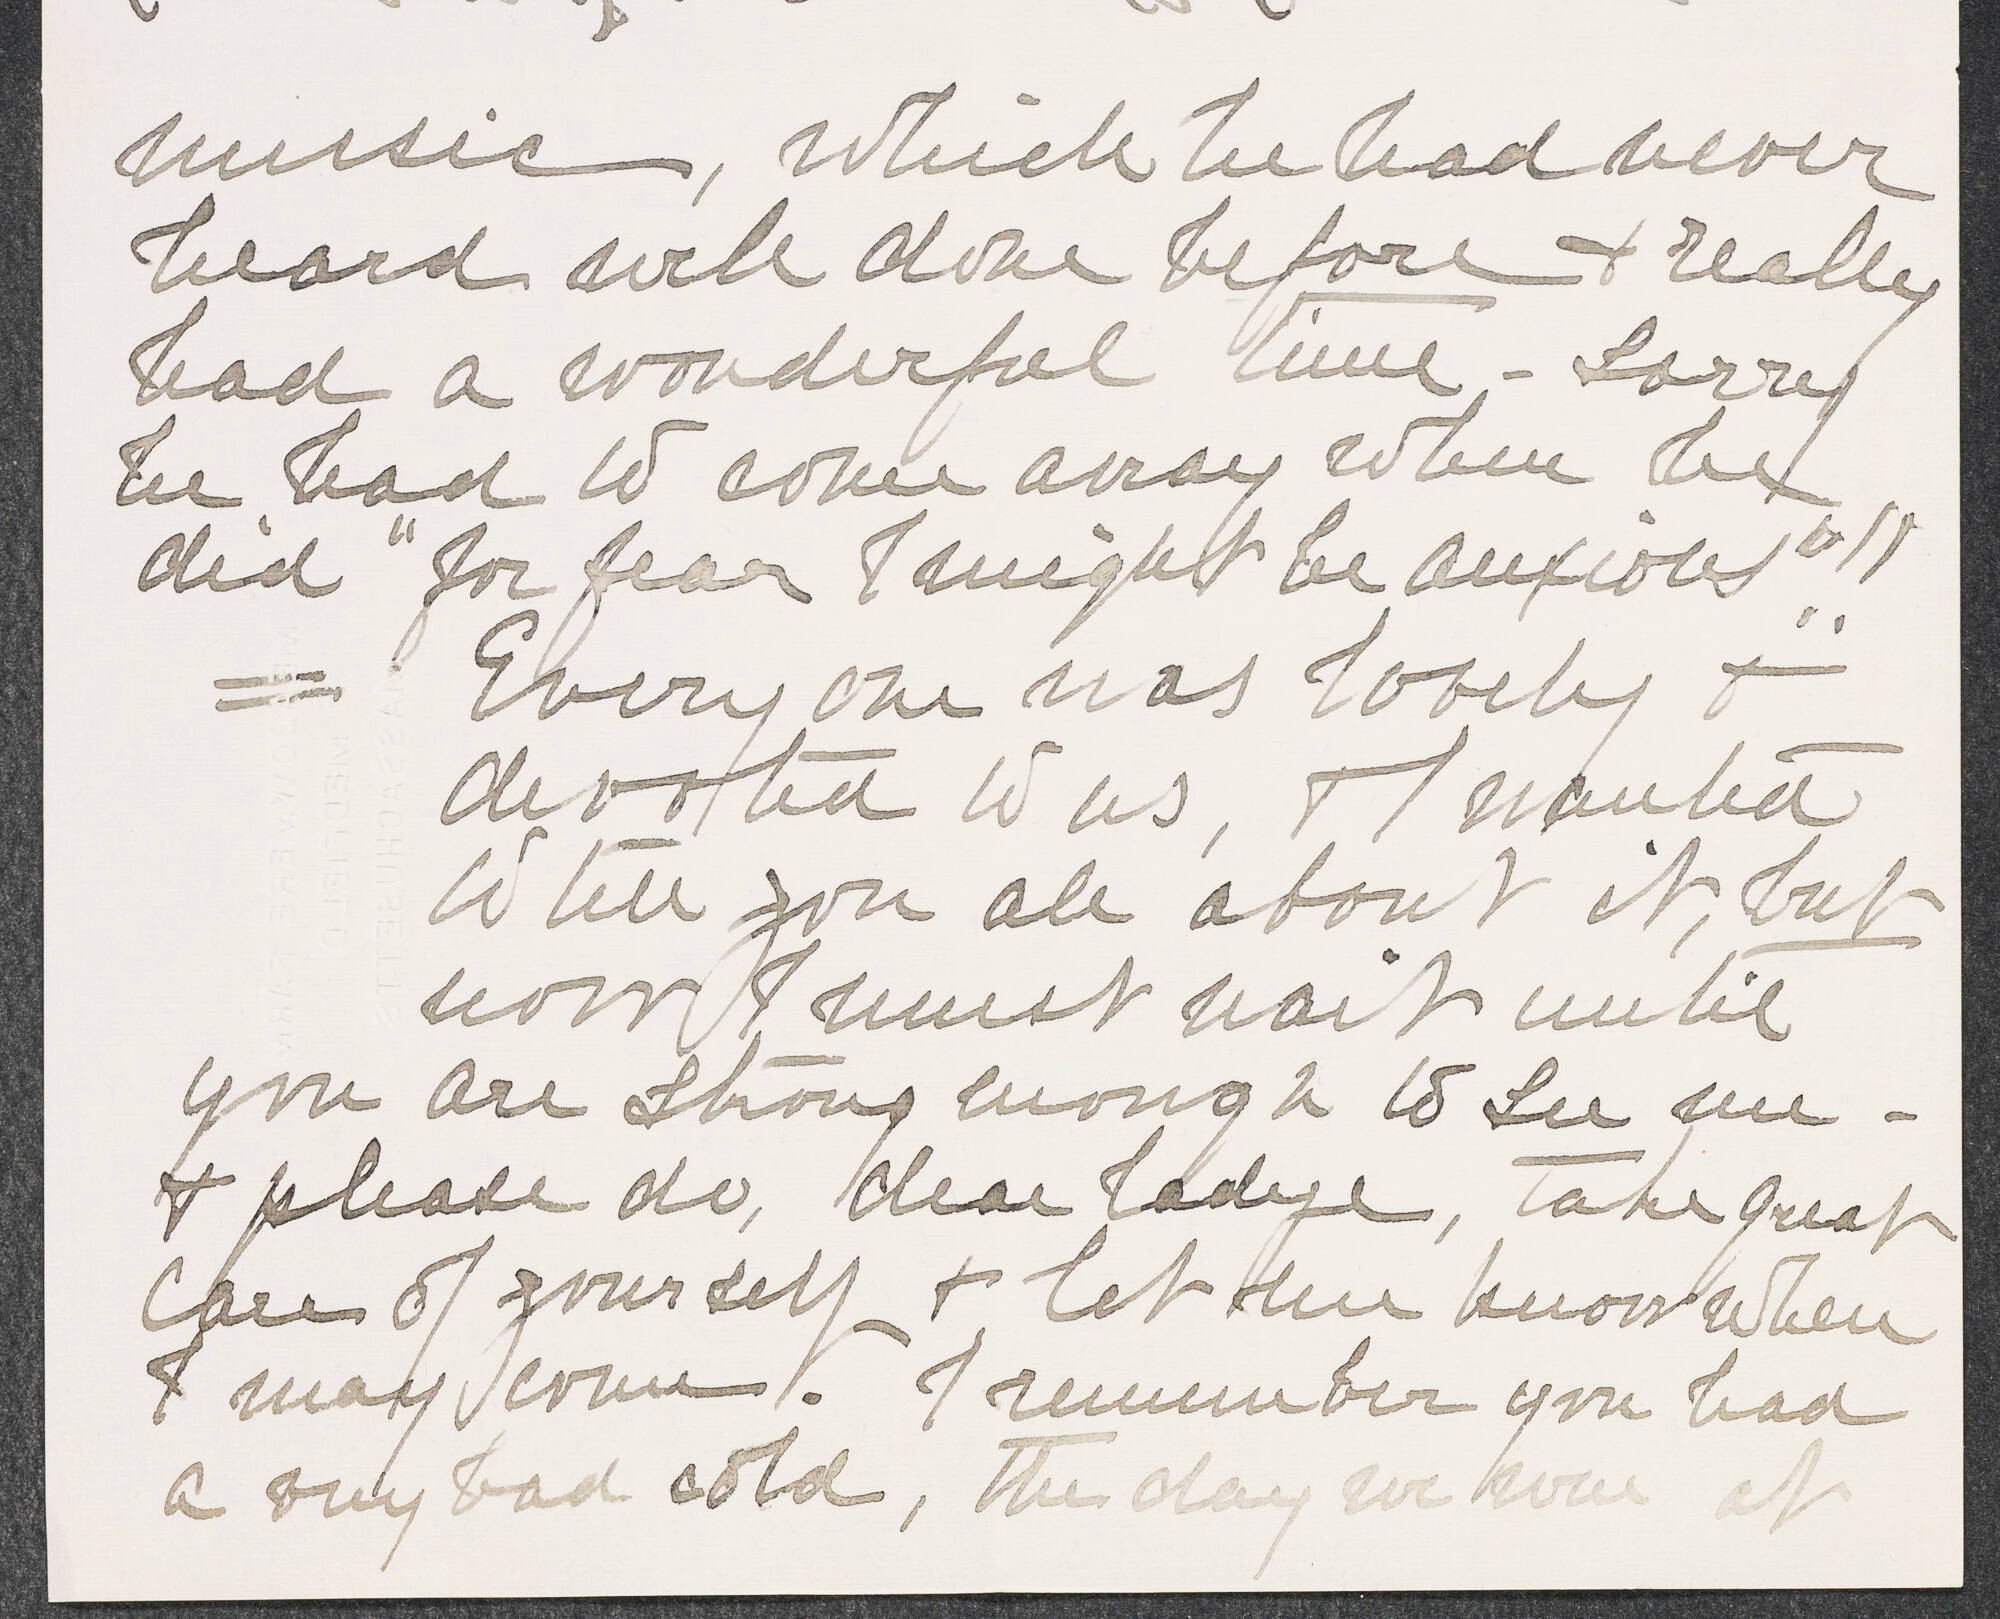 music, which he had never
heard well done before & really
had a wonderful time - sorry
he had to come away when he
did "for fear I might be anxious"!!
= Everyone was lovely &
devoted to us, & I wanted
to tell you all about it, but
now I must wait until
you are strong enough to see me -
& please do, dear Ladye, take great
care of yourself & let me know when
I may come. I remember you had
a very bad cold, the day we were at
MEDFIELD
MASSACHUSETTS